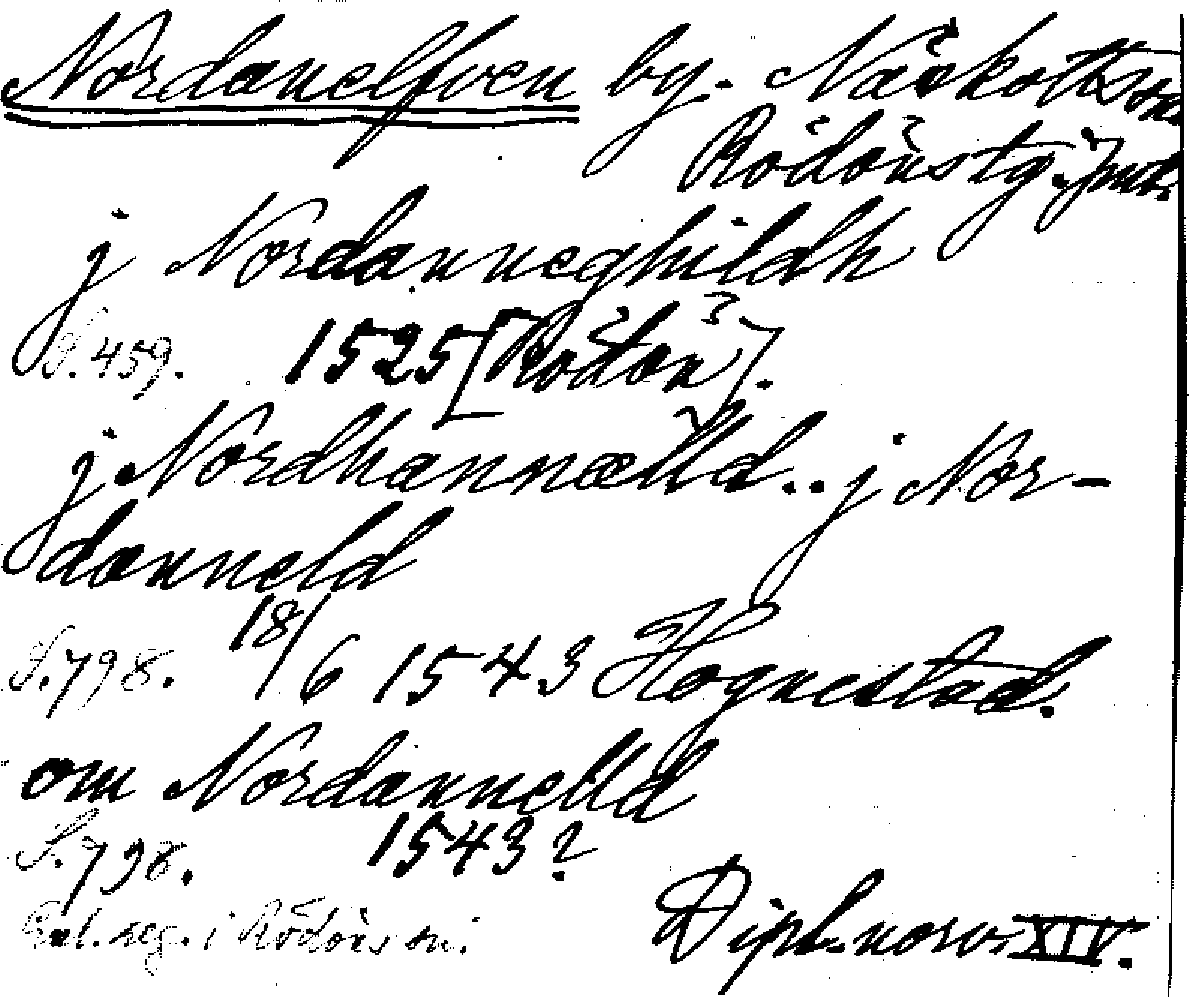 Nordanelfven by. Näskotts sn
Rödöns tg. Jmt.
j Nordanneghildh
S. 459. 1525 [Rödön].
j Nordhannælld.. j Nor-
danneld
S. 798. 18/6 1543 Hognestad.
om Nordannelld
S. 798. 1543?
Enl. reg. i Rödöns sn.
Dipl. norv. XIV.